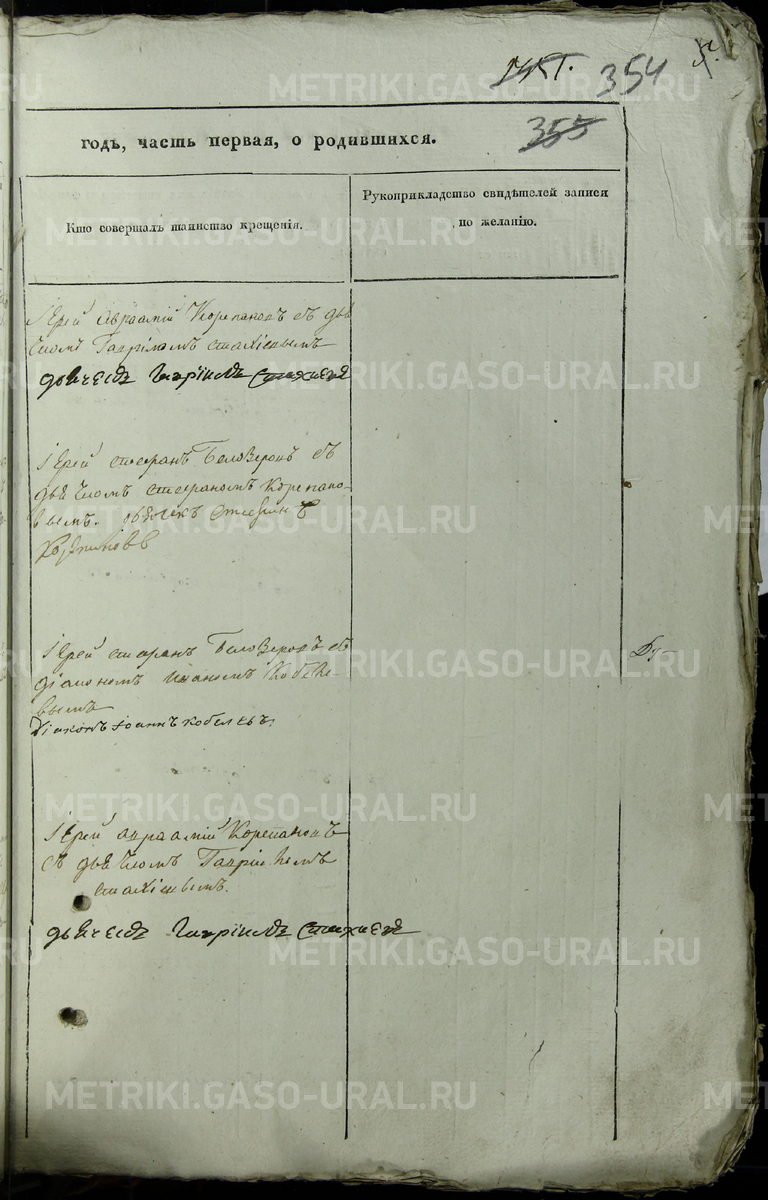 354
355
годъ, часть первая, о родившихся.
Кто совершалъ таинство крещенія.
Рукоприкладство свидѣтелей записи
по желанію.
Іерей Авраамій Корепановъ съ дья
чкомъ Гавріиломъ Стахіевымъ
дьячекъ Гавріилъ Стахиевъ
Іерей Стефанъ Белозеровъ съ
дьячкомъ Стефаномъ Корепано-
вымъ. дьячекъ Стефанъ
Корепановъ
Іерей Стефанъ Белозеровъ съ
діакономъ Иваномъ Кобеле-
вымъ
Діаконъ Іоаннъ Кобелевъ
Іерей Авраамій Корепановъ
съ дьячкомъ Гавріиломъ
Стахіевымъ.
дьячекъ Гавріилъ Стахиевъ
METRIKI.GASO-URAL.RU